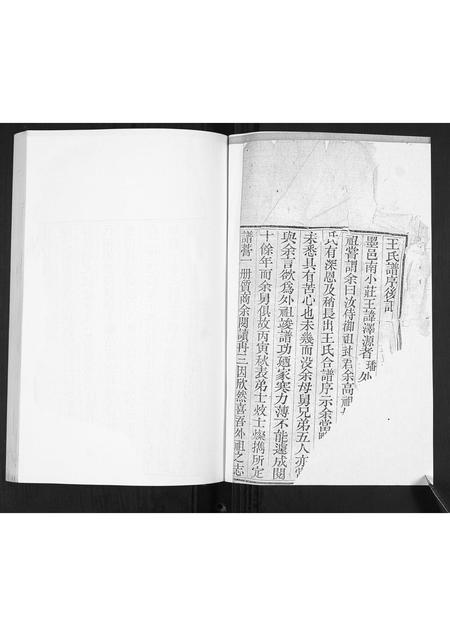 王氏譜序後記
墨邑南小莊王諱澤源者璠外
祖嘗謂余曰汝侍御祖封君余高祖
氏有深恩及稍長出王氏合譜序示余當時
未悉其有苦心也未幾而没余母舅兄弟五人亦嘗
與余言欲為外祖竣譜功廼家寒力薄不能遽成閱
十餘年而余舅俱故丙寅秋表弟士敚士燦携所定
譜藁一册質商余閱讀再三因欣然喜吾外祖之志